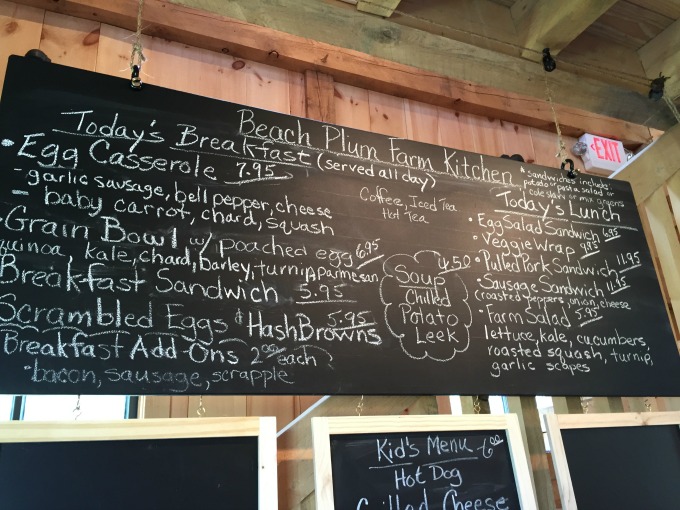 Beach Plum Farm Kitchen
Today's Breakfast (served all day)
• Egg Casserole 7.95
- garlic sausage, bell pepper, cheese
- baby carrot, chard, squash
• Grain Bowl w/ poached egg 6.95
quinoa, kale, chard, barley, turnip, parmesan
Breakfast Sandwich 5.95
Scrambled Eggs & HashBrowns 5.95
Breakfast Add-Ons 2.00 each
• bacon, sausage, scrapple
Coffee, Iced Tea
Hot Tea
Soup 4.50
Chilled
Potato
Leek
* sandwiches include
potato or pasta salad or
side salad or mix greens
Today's Lunch
• Egg Salad Sandwich 6.95
• Veggie Wrap 9.95
• Pulled Pork Sandwich 11.95
• Sausage Sandwich
(roasted peppers, onion, cheese
• Farm Salad 5.95
lettuce, kale, cucumbers,
roasted squash, turnip,
garlic scapes
EXIT
Kid's Menu 6.00
Hot Dog
Grilled Cheese